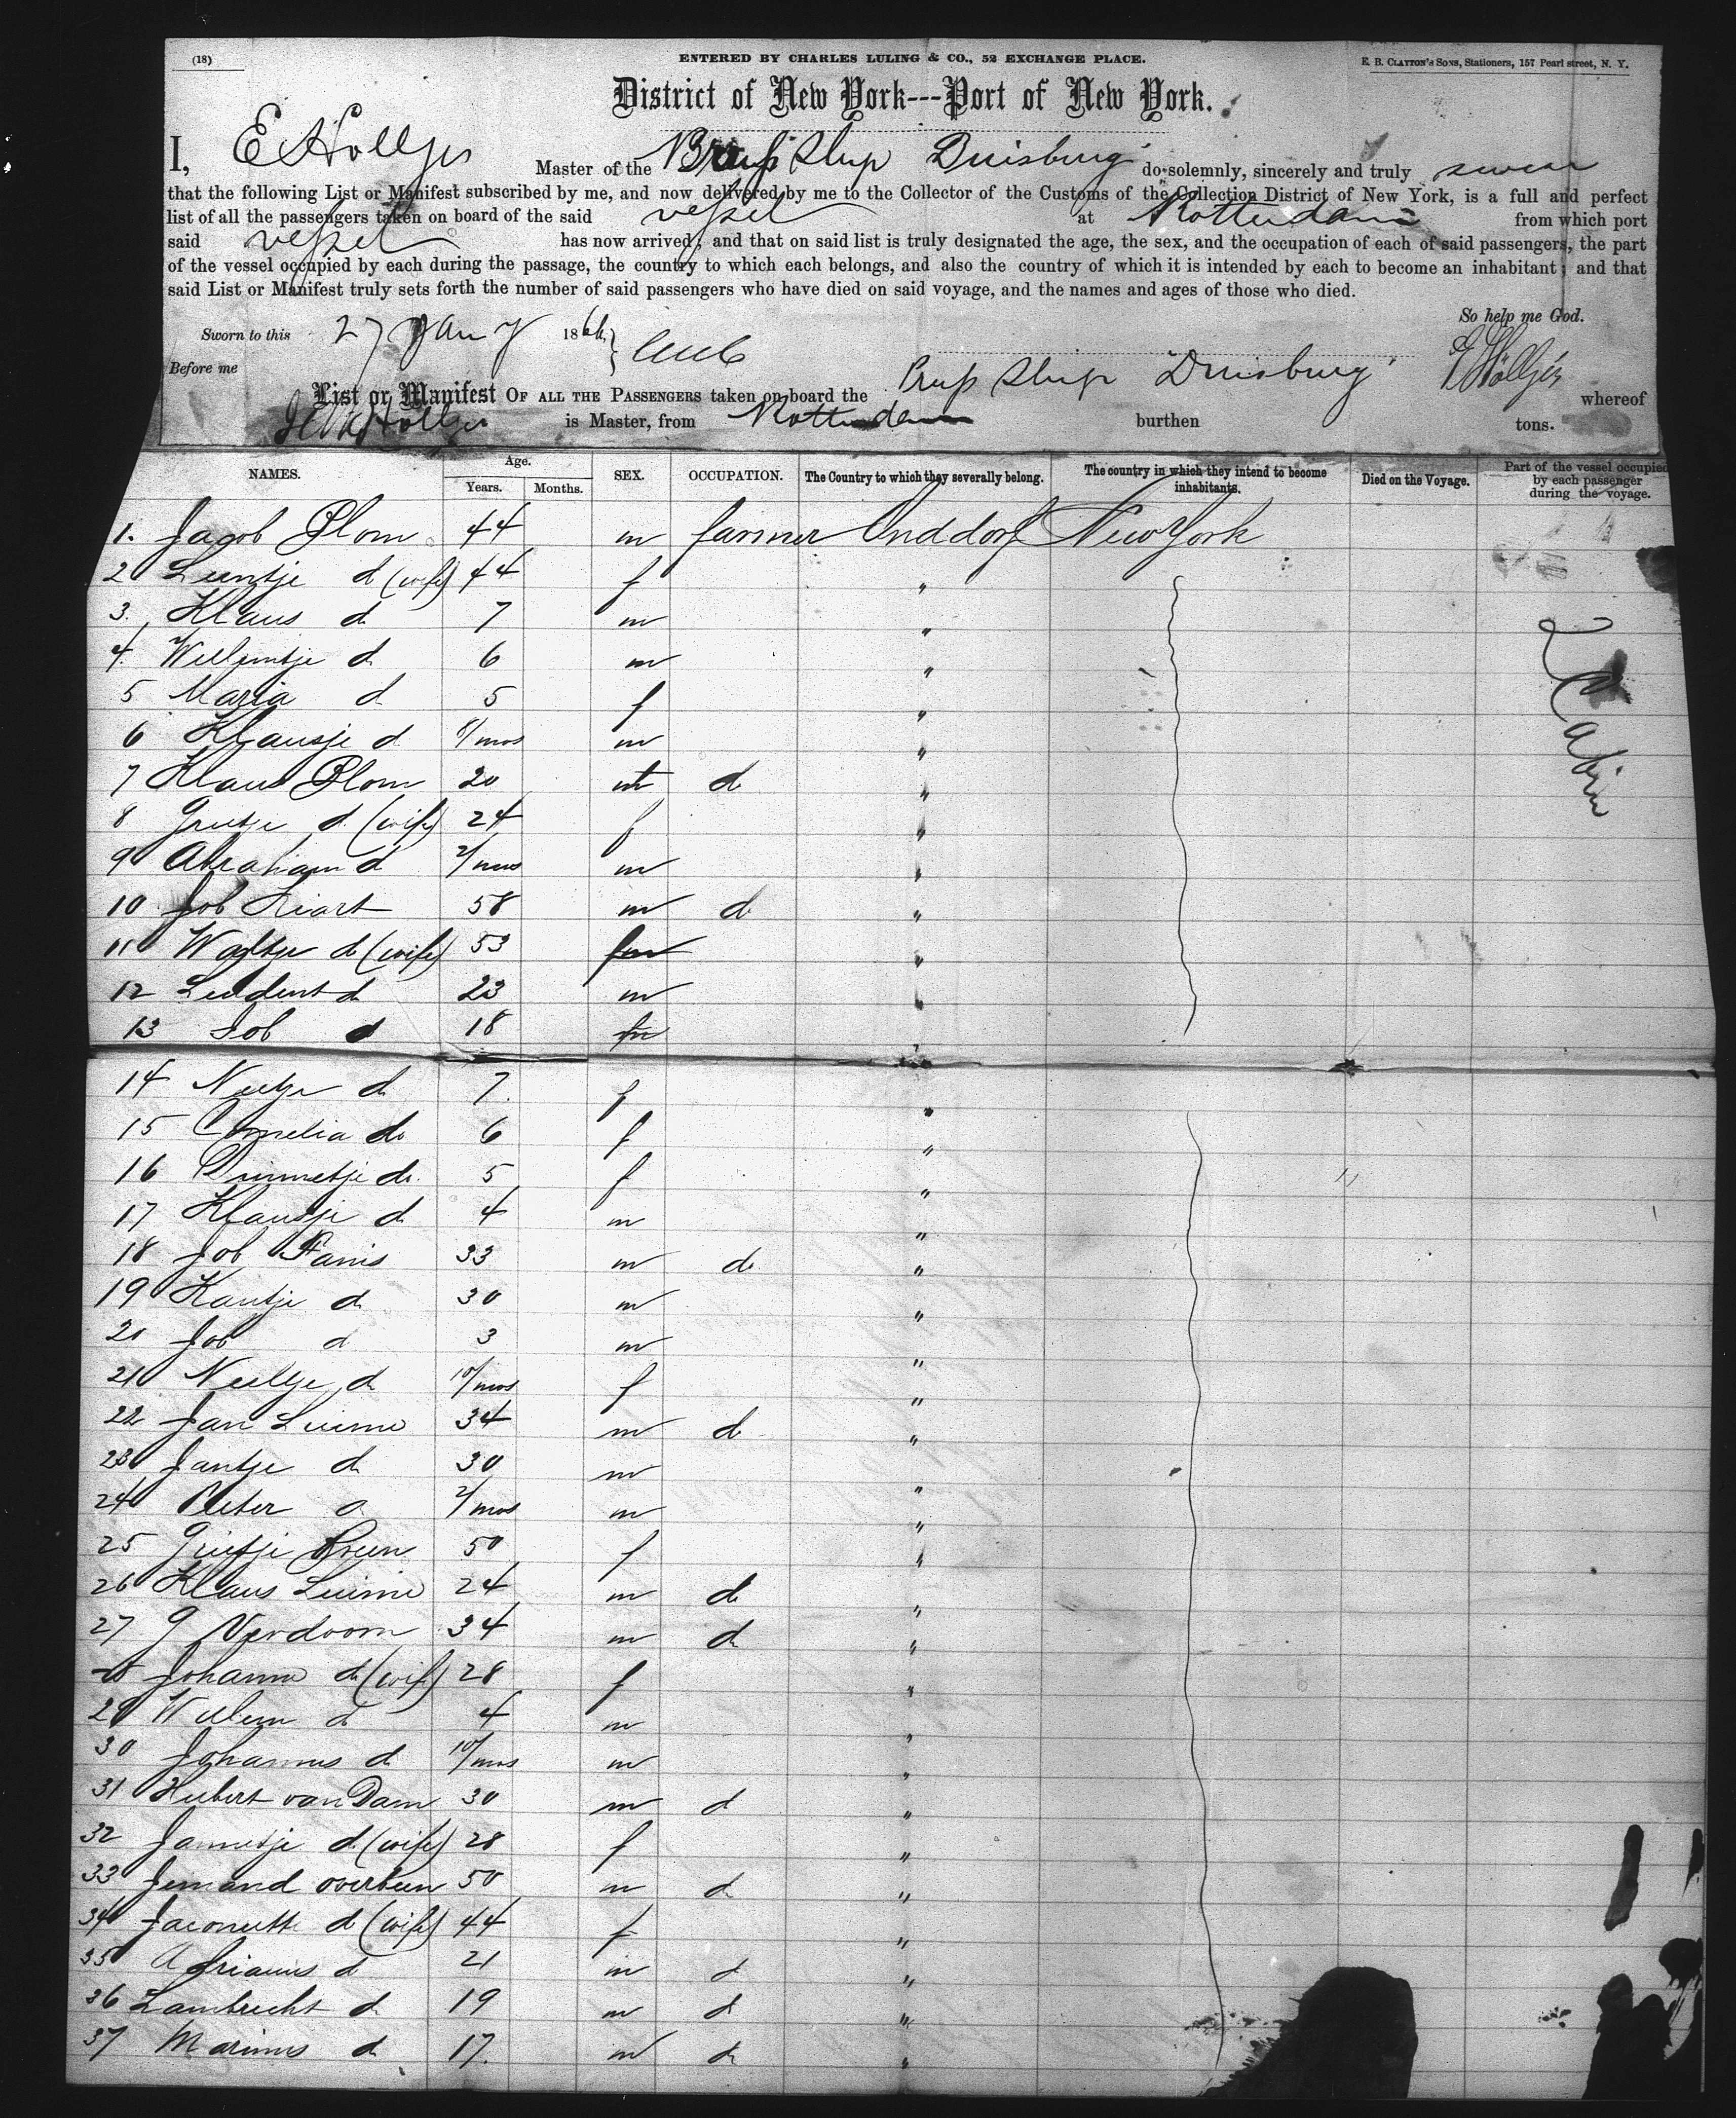 (18)
ENTERED BY CHARLES LULING & CO., 52 EXCHANGE PLACE.
E. B. CLAYTON'S SONS, Stationers, 157 Pearl street, N. Y.
District of New York---Port of New York.
I, E Hölljes Master of the Pruss Ship Duisburg do solemnly, sincerely and truly swear
that the following List or Manifest subscribed by me, and now delivered by me to the Collector of the Customs of the Collection District of New York, is a full and perfect
list of all the passengers taken on board of the said vessel at Rotterdam from which port
said vessel has now arrived; and that on said list is truly designated the age, the sex, and the occupation of each of said passengers, the part
of the vessel occupied by each during the passage, the country to which each belongs, and also the country of which it is intended by each to become an inhabitant; and that
said List or Manifest truly sets forth the number of said passengers who have died on said voyage, and the names and ages of those who died.
So help me God.
Sworn to this 27 Jany 1866
Before me
E Hölljes
List or Manifest OF ALL THE PASSENGERS taken on board the Pruss Ship Duisburg whereof
Hölljes is Master, from Rotterdam burthen tons.
NAMES. Age. Years. Months. SEX. OCCUPATION. The Country to which they severally belong. The country in which they intend to become inhabitants. Died on the Voyage. Part of the vessel occupied by each passenger during the voyage.
1. Jacob Blom 44 m farmer Ouddorf New York
2 Leentje d (wife) 44 f "
3. Klaus d 7 m "
4. Willemtje d 6 m "
5 Maria d 5 f "
2d Cabin
6 Klausje d 8/mos m "
7 Klaus Blom 20 m d "
8 Greetje d (wife) 24 f "
9 Abraham d 2/mos m "
10 Job 58 m d "
11 d (wife) 53 "
12 d 23 m "
13 Job d 18 m "
14 Neeltje d 7. f "
15 Cornelia do 6 f "
16 do. 5 f "
17 Klausje d 4 m "
18 Job Fanis 33 m do "
19 d 30 m "
20 Job d 3 m "
21 Neeltje d 10/mos f "
22 Jan 34 m do "
23 Jantje d 30 m "
24 Pieter d 2/mos m "
25 Grietje 50 f "
26 Klaus 24 m do "
27 J Verdoorn 34 m d "
28 Johanna d (wife) 28 f "
29 Willem d 4 m "
30 Johannus d 10/mos m "
31 Hubert van Dam 30 m d "
32 Jannetje d (wife) 28 f "
33 overbeen 50 m d "
34 d (wife) 44 f "
35 Adrianus d 21 m d "
36 Lambrecht d 19 m d "
37 Marinus d 17. m d "